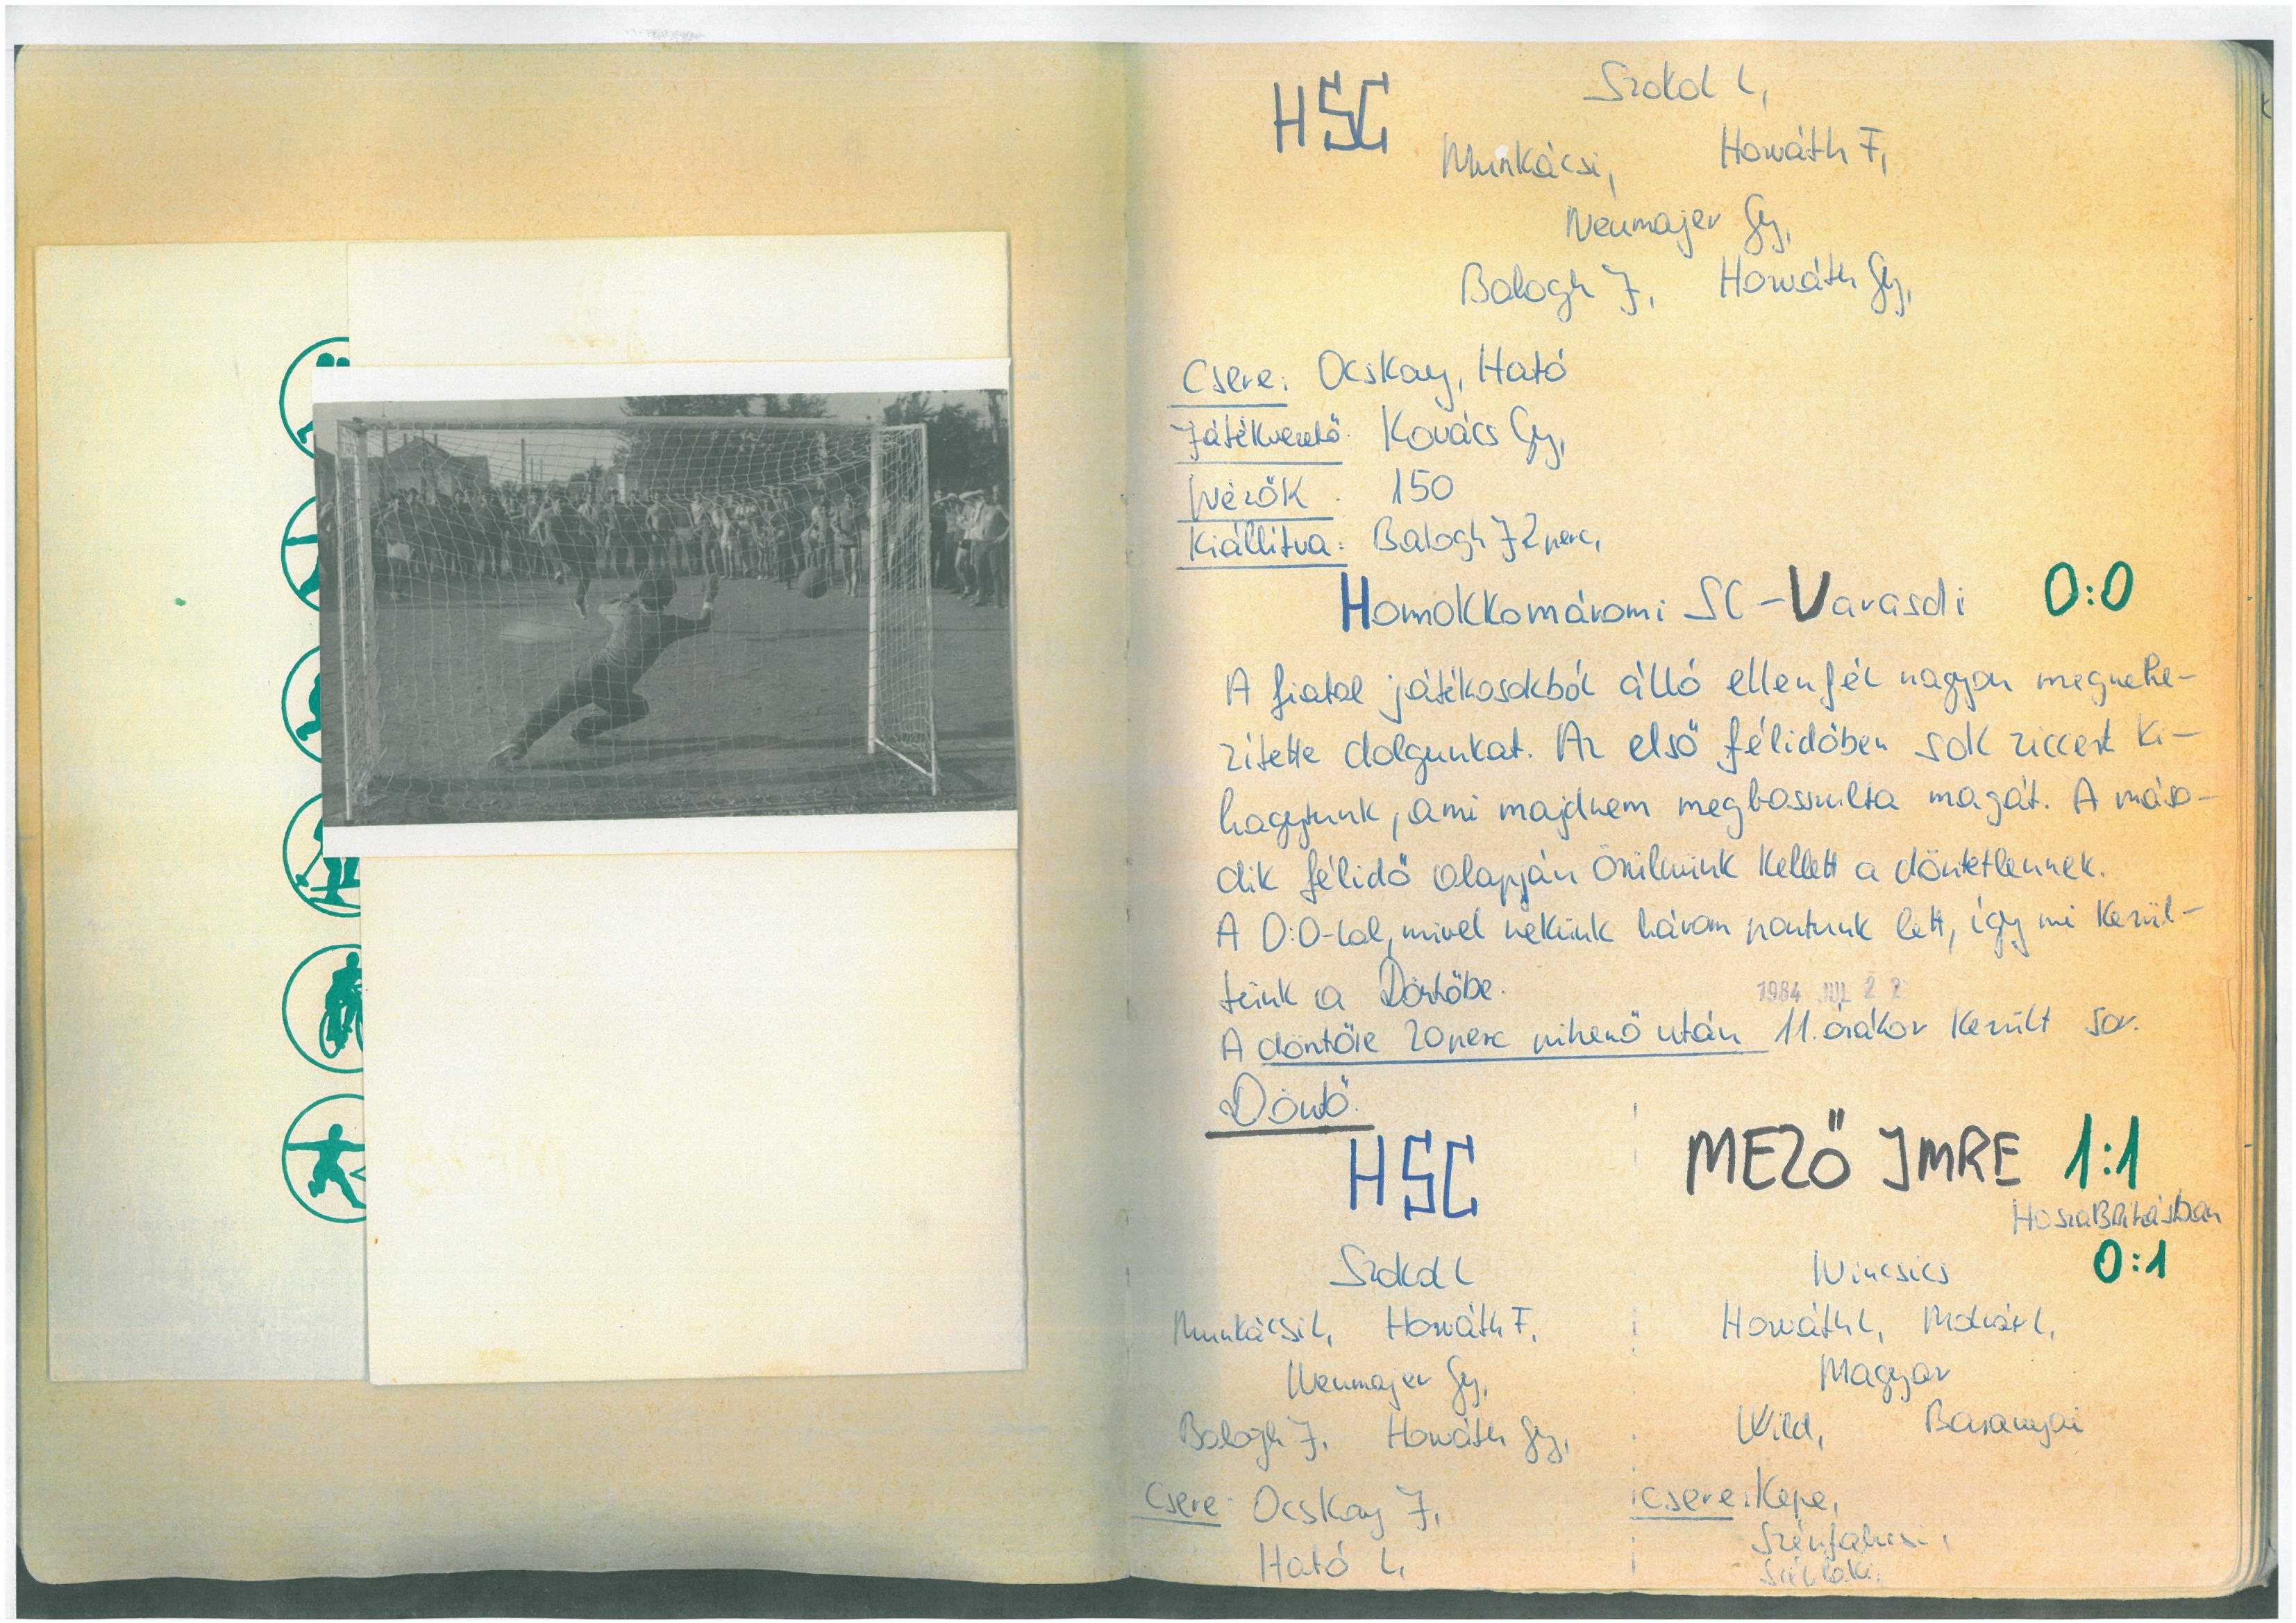 HSC
Szokol L,
Munkácsi, Horváth F,
Neumajer Gy,
Balogh J, Horváth Gy,
Csere: Ocskay, Ható
Játékvezető: Kovács Gy,
Nézők: 150
Kiállítva: Balogh J 2 perc,
Homokkomáromi SC - Varasdi 0:0
A fiatal játékosokból álló ellenfél nagyon megnehe-
zítette dolgunkat. Az első félidőben sok ziccert ki-
hagytunk, ami majdnem megbosszulta magát. A máso-
dik félidő alapján örülnünk kellett a döntetlennek.
A 0:0-lal, mivel nekünk három pontunk lett, így mi kerül-
tünk a Döntőbe.
1984 JUL 22
A döntőre 20 perc pihenő után 11. órákor került sor.
Döntő.
HSC MEZŐ IMRE 1:1
Hosszabbításban
0:1
Szokol L Vincsics
Munkácsi L, Horváth F, Horváth L, Molnár L,
Neumajer Gy, Magyar
Balogh J, Horváth Gy, Wild, Baranyai
Csere: Ocskay J, Csere: Kepe,
Ható L,